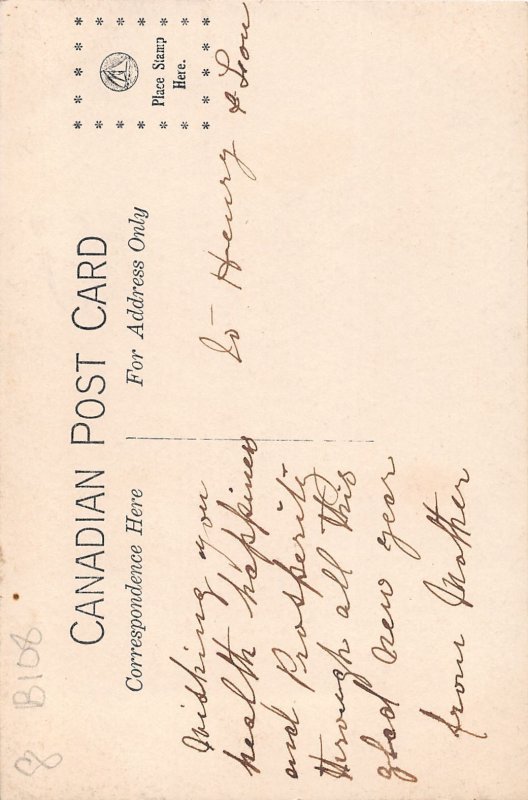 CANADIAN POST CARD
Correspondence Here
For Address Only
Place Stamp
Here.
Wishing you
health happiness
and Prosperity
through all this
glad new year
from Mother
To Henry & Leon
8 B108